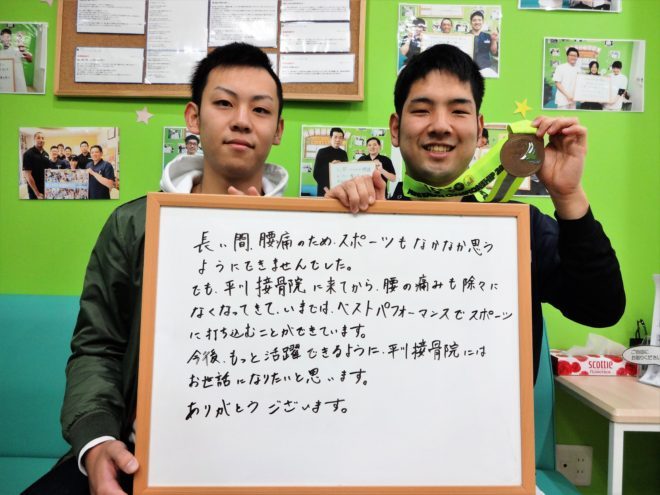 長い間、腰痛のため、スポーツもなかなか思う
ようにできませんでした。
でも、平川接骨院に来てから、腰の痛みも除々に
なくなってきて、いまでは、ベストパフォーマンスでスポーツ
に打ち込むことができています。
今後、もっと活躍できるように、平川接骨院には
お世話になりたいと思います。
ありがとうございます。
scottie